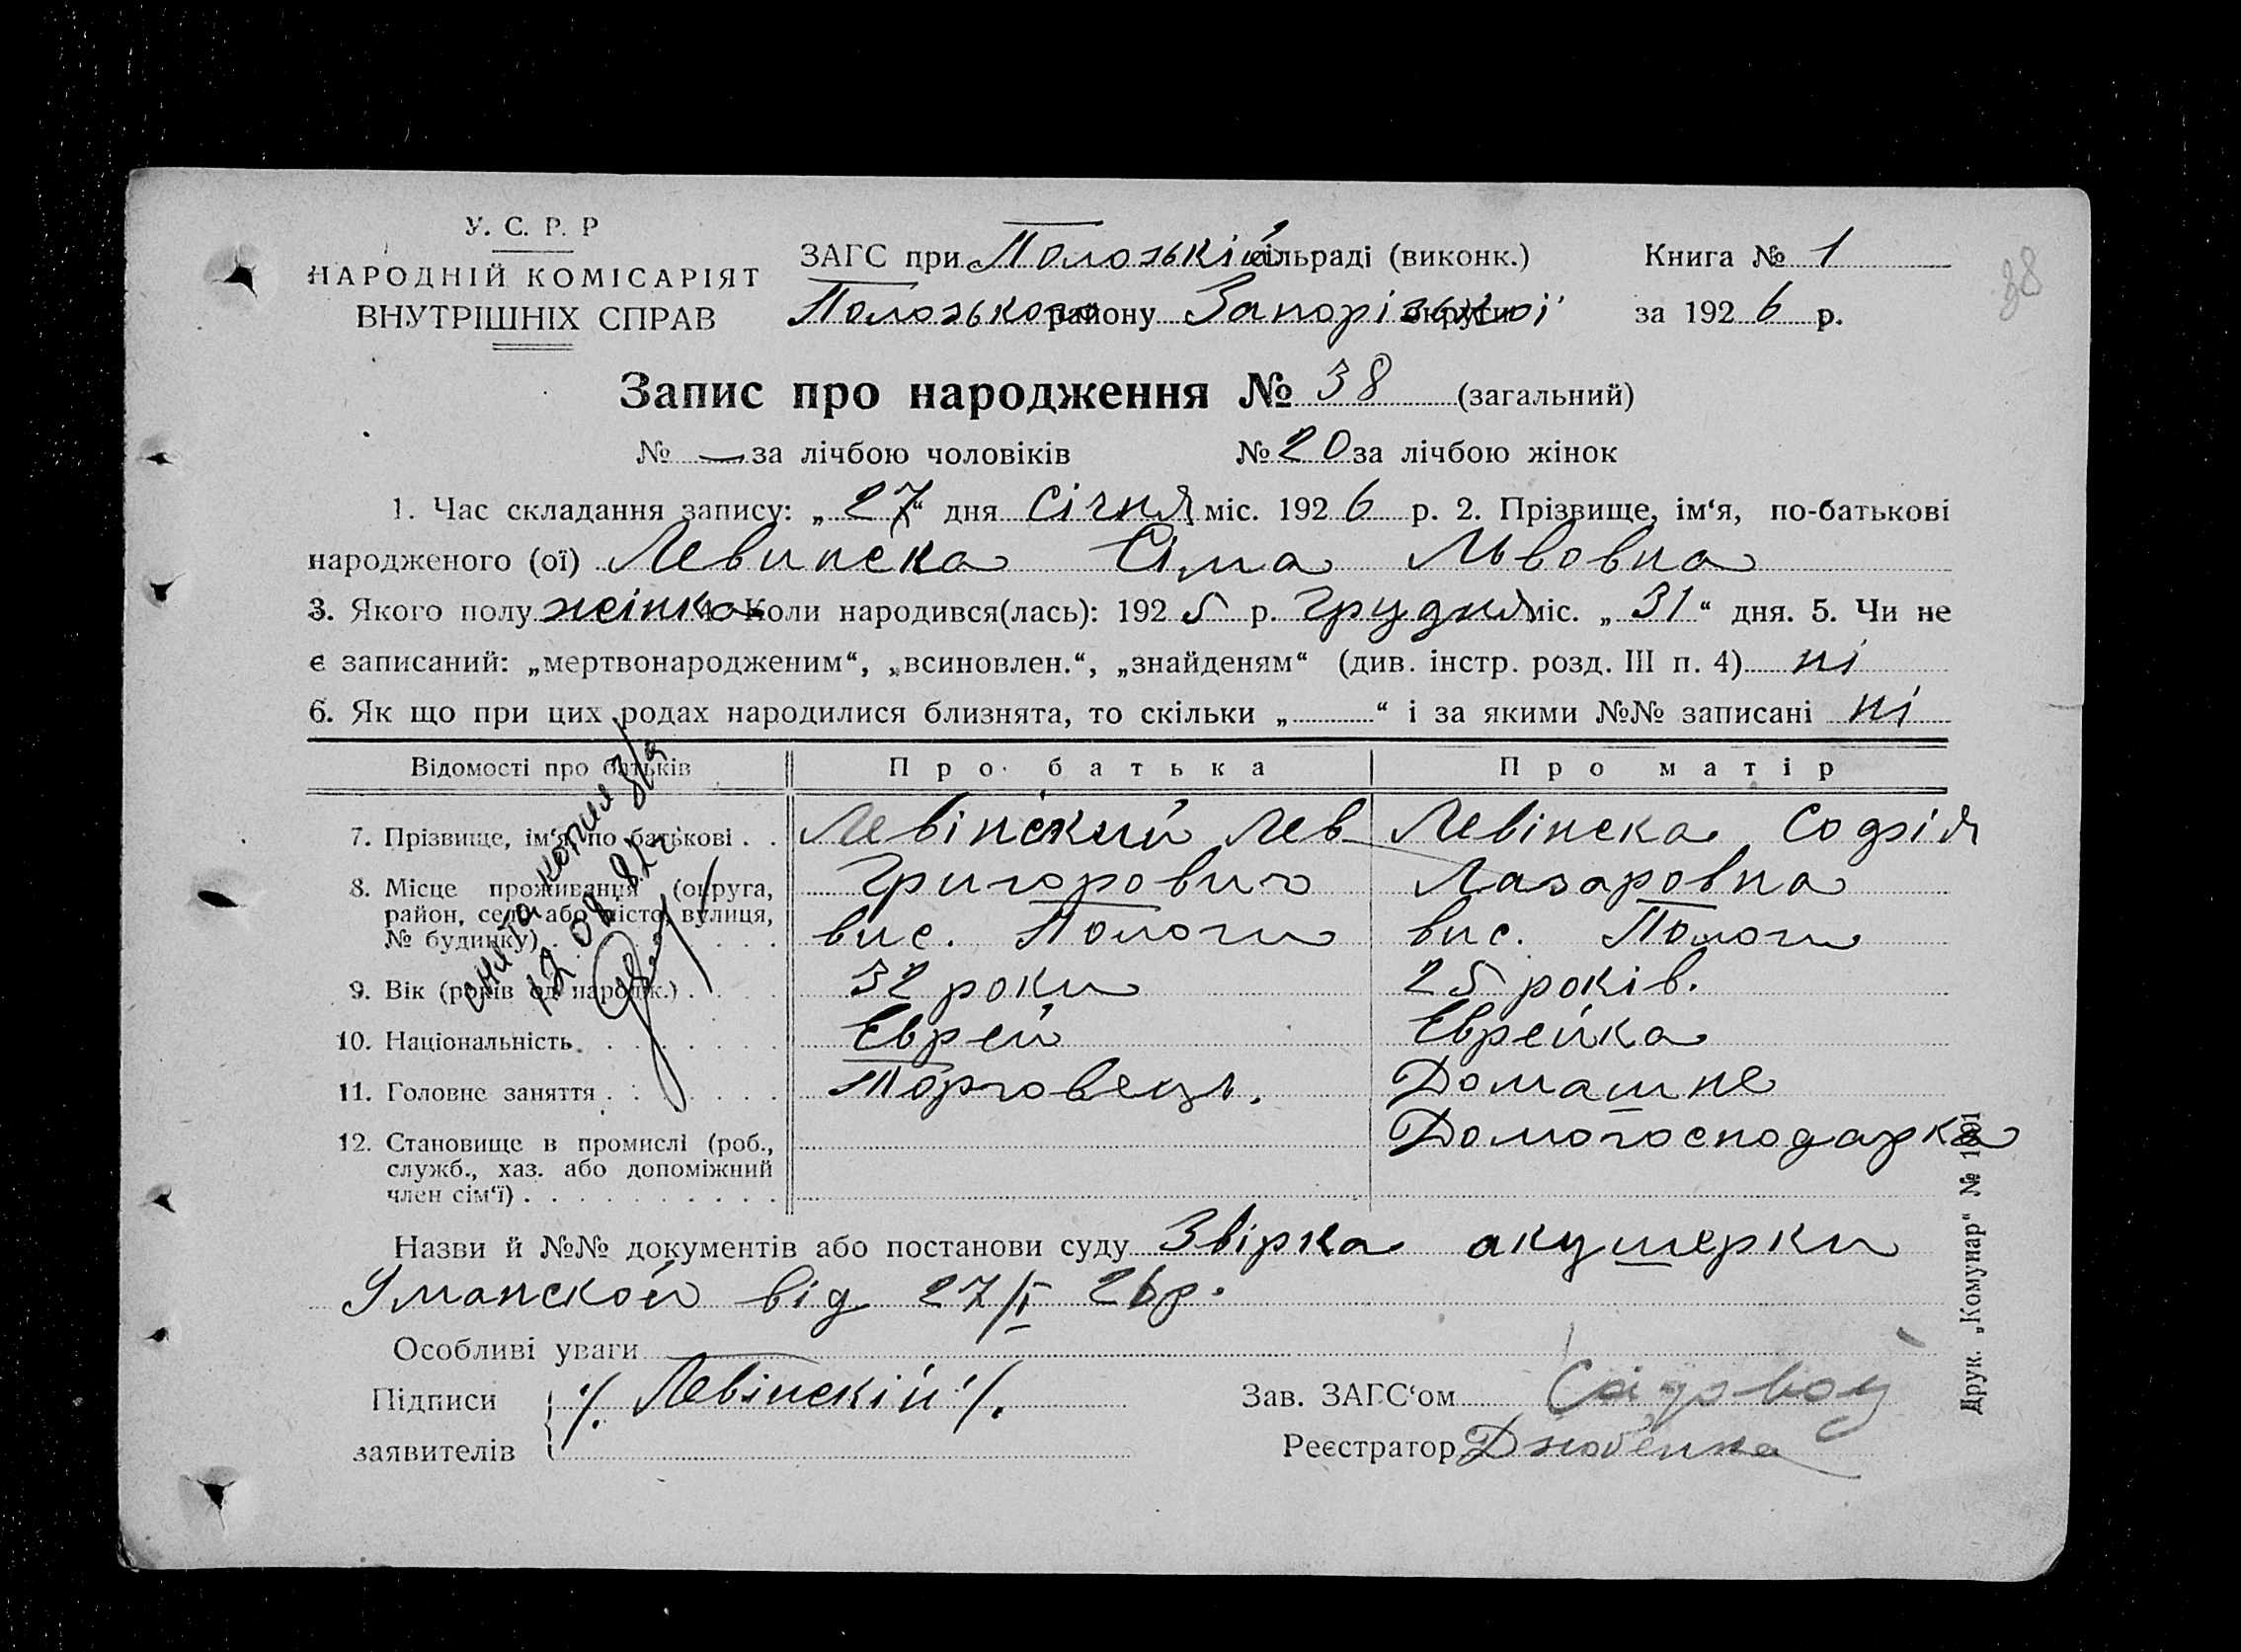 У. С. Р. Р
НАРОДНІЙ КОМІСАРІЯТ
ВНУТРІШНІХ СПРАВ
ЗАГС при Пологькій сільраді (виконк.) Книга № 1
Пологького району Запорізької округи за 1926 р.
38
Запис про народження № 38 (загальний)
№ — за лічбою чоловіків № 20 за лічбою жінок
1. Час складання запису: „27“ дня Січня міс. 1926 р. 2. Прізвище, ім‘я, по-батькові
народженого (ої) Левинська Сіма Львовна
3. Якого полу жінка 4. Коли народився(лась): 1925 р. Грудня міс. „31“ дня. 5. Чи не
є записаний: „мертвонародженим“, „всиновлен.“, „знайденям“ (див. інстр. розд. III п. 4) ні
6. Як що при цих родах народилися близнята, то скільки „ “ і за якими №№ записані ні
Відомості про батьків Про батька Про матір
7. Прізвище, ім‘я, по батькові . . Левінский Лев Левінска Софія
8. Місце проживання (округа, Григорович Лазаровна
район, село або місто, вулиця,
№ будинку) . . . . вис. Пологи вис. Пологи
9. Вік (років од народж.) . . . 32 роки 25 років.
10. Національність . . . . Еврей Еврейка
11. Головне заняття . . . . Торговець. Домашнє
12. Становище в промислі (роб., Домогосподарка
служб., хаз. або допоміжний
член сім‘ї) . . . . . . . . . .
снята копия
12.08.82г.
Назви й №№ документів або постанови суду Звірка акушерки
Уманской від 27/I 26р.
Особливі уваги
Підписи /. Левінскій /. Зав. ЗАГС‘ом
заявителів Реєстратор
Друк. „Комунар“ №